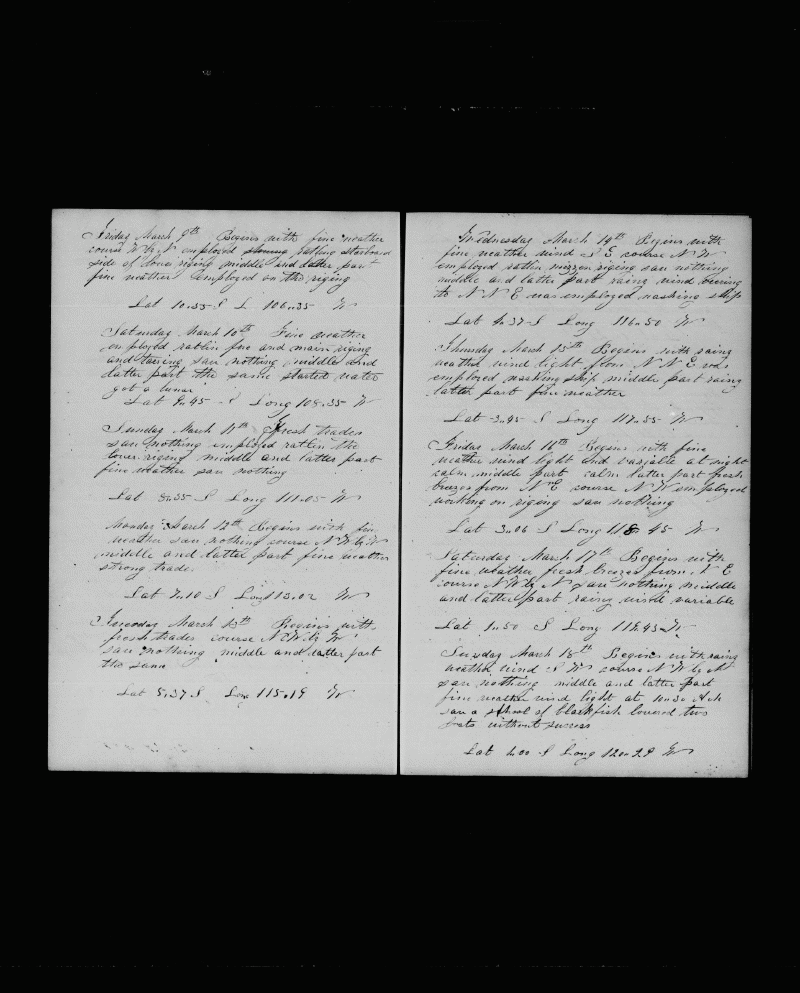 Friday March 9th Begins with fine weather
course W by N employed tarring ratling starboard
side of fore riging middle and latter part
fine weather employed on the riging
Lat 10.55 S L 106.35 W
Saturday March 10th Fine weather
employed ratlin fore and main riging
and tarring saw nothing middle and
latter part the same started water
got a lunar
Lat 9.45 S Long 108.35 W
Sunday March 11th Fresh trades
saw nothing employed ratlin the
lower riging middle and latter part
fine weather saw nothing
Lat 8.35 S Long 111.05 W
Monday March 12th Begins with fin
weather saw nothing course N W by W
middle and latter part fine weather
strong trade.
Lat 7.10 S Long 113.02 W
Tuesday March 13th Begins with
fresh trades course N W by W
saw nothing middle and latter part
the same
Lat 5.37 S Long 115.19 W
Wednesday March 14th Begins with
fine weather wind S E course N W
employed ratlen mizzen riging saw nothing
middle and latter part rainy wind vearing
to N N E was employed washing ship
Lat 4.37 S Long 116.50 W
Thursday March 15th Begins with rainy
weather wind light from N N E
employed washing ship middle part rainy
latter part fine weather
Lat 3.45 S Long 117.55 W
Friday March 16th Begins with fine
weather wind light and variable at night
calm middle part calm latter part fresh
breezes from N E course N W employed
working on riging saw nothing
Lat 3.06 S Long 118.45 W
Saturday March 17th Begins with
fine weather fresh breezes from N E
course N W by N saw nothing middle
and latter part rainy wind variable
Lat 1.50 S Long 119.45 W
Sunday March 18th Begins with rainy
weather wind S W course N W by N
saw nothing middle and latter part
fine weather wind light at 10.30 A M
saw a school of blackfish lowered two
boats without success
Lat 1.00 S Long 120.29 W